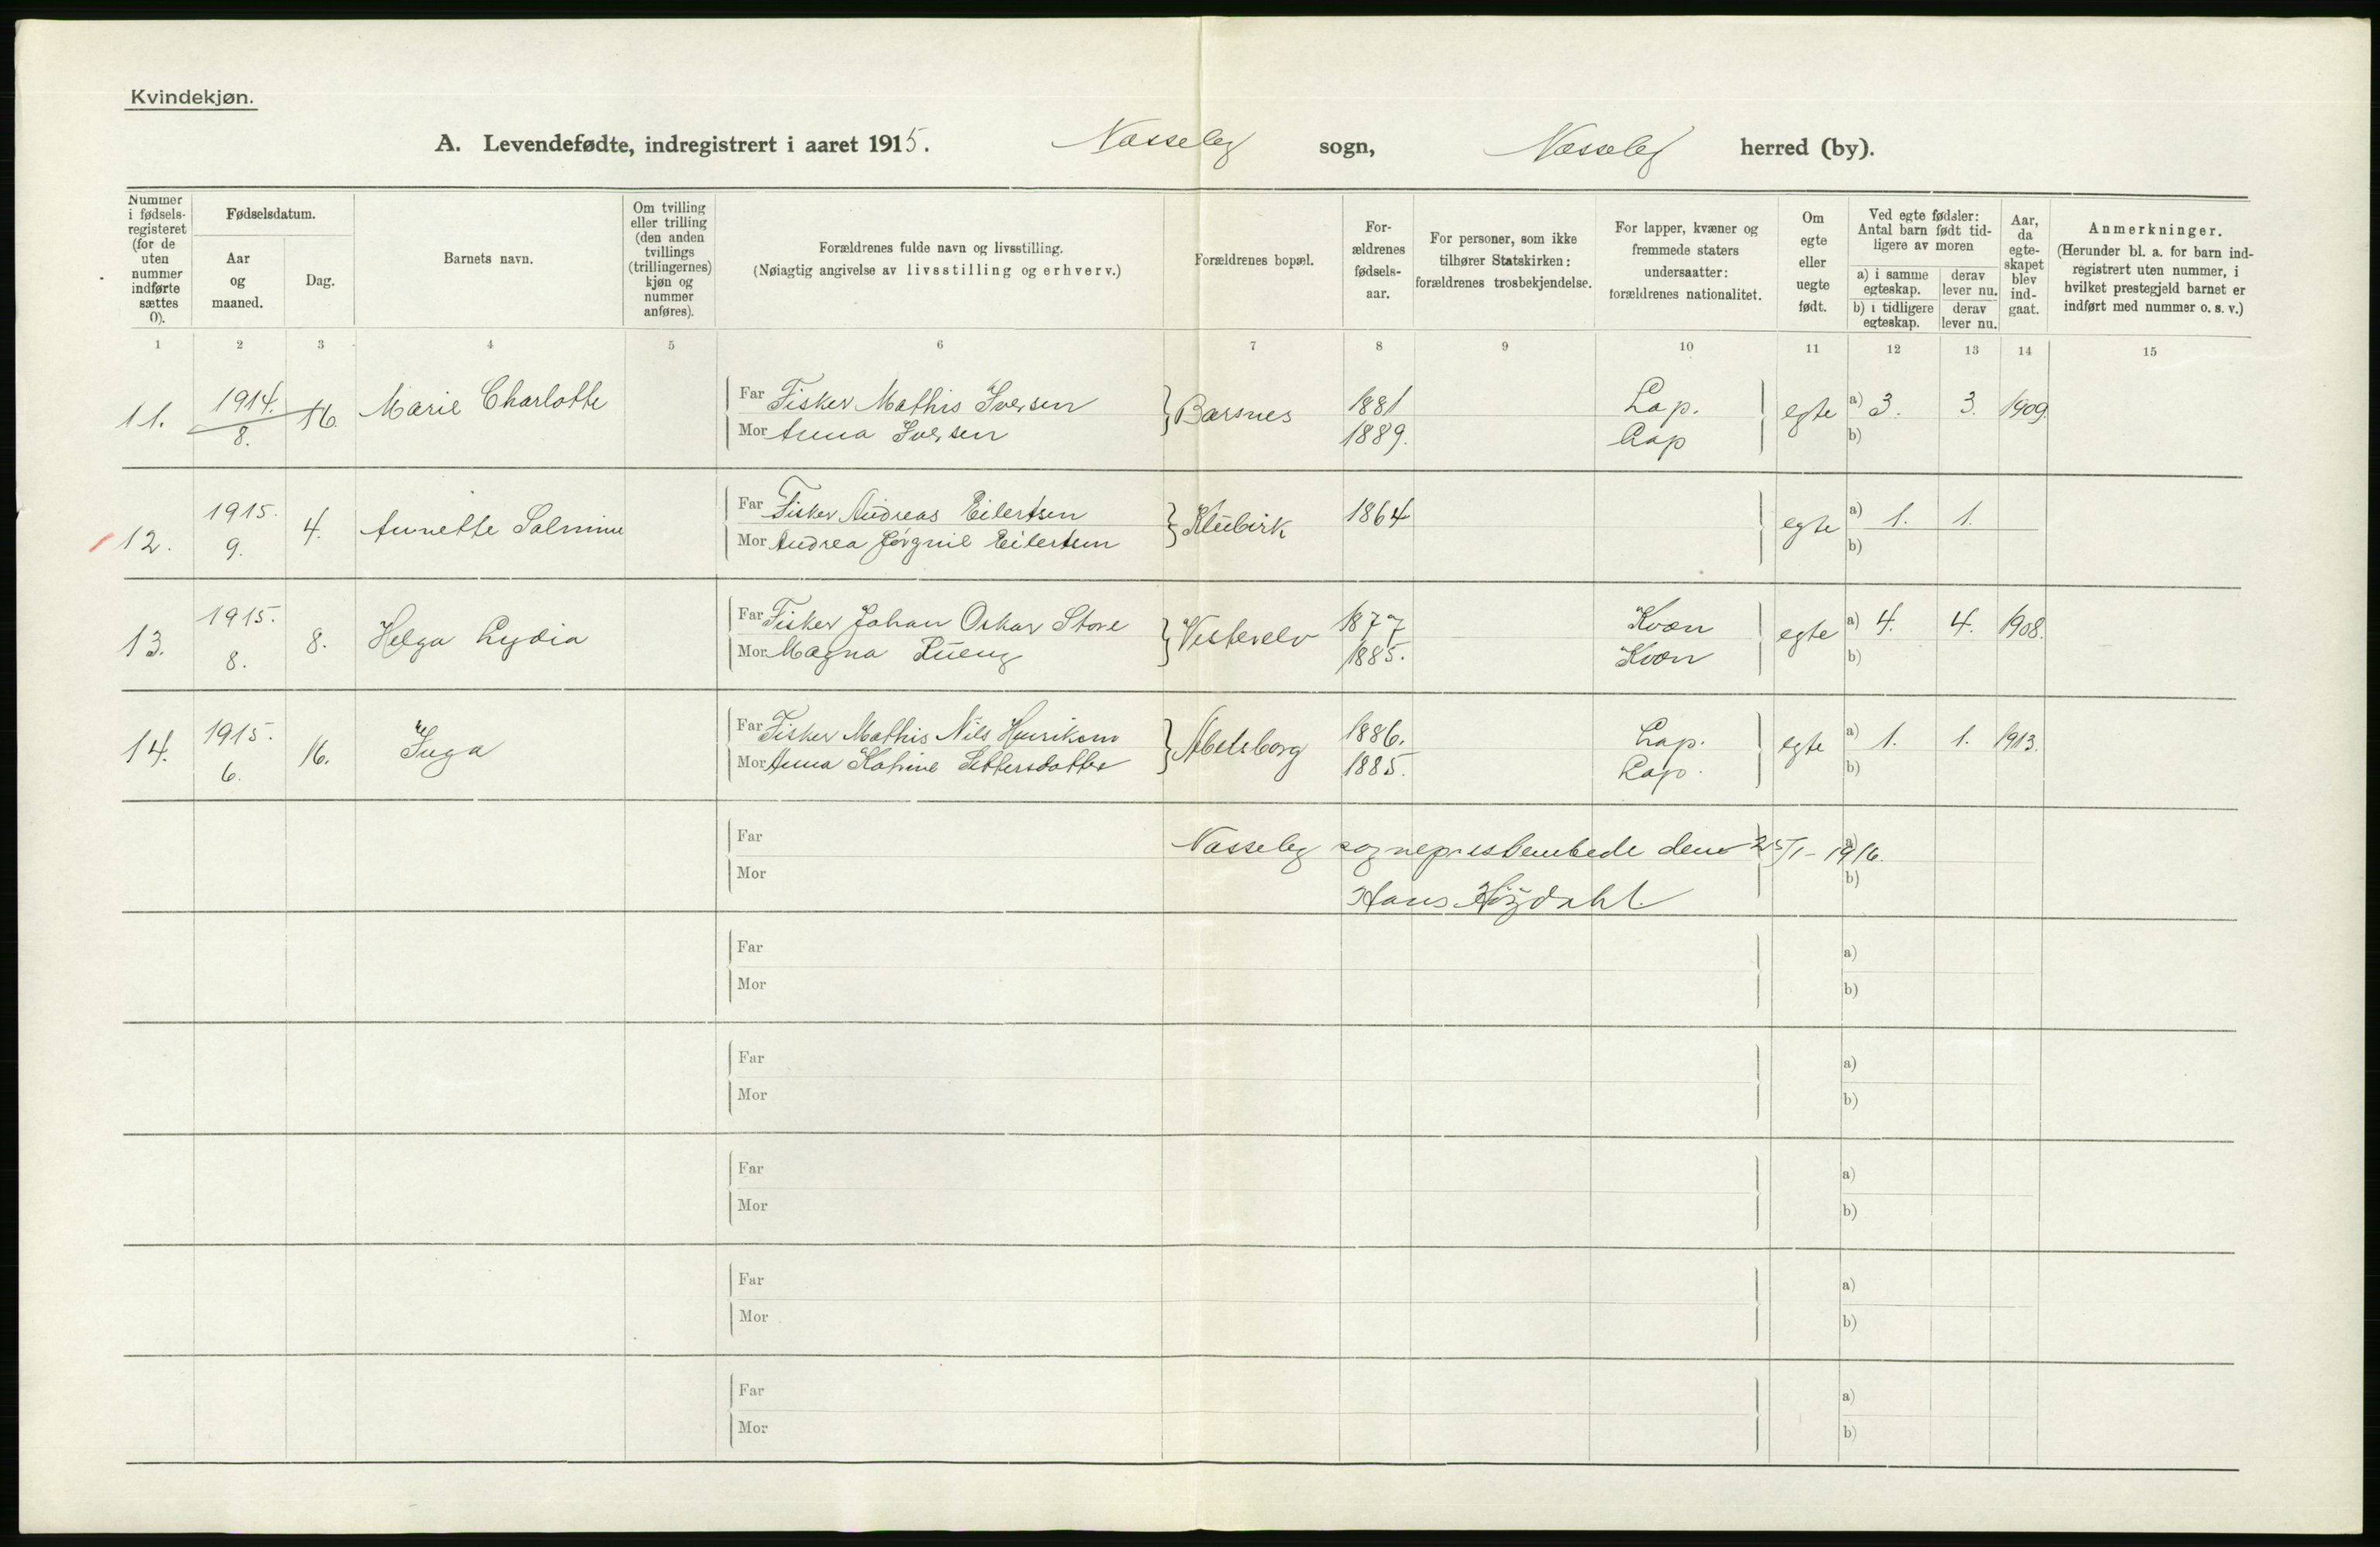 Kvindekjøn.
A. Levendefødte, indregistrert i aaret 1915. Næsseby sogn, Næsseby herred (by).
Nummer i fødselsregisteret (for de uten nummer indførte sættes 0).
Fødselsdatum.
Aar og maaned.
Dag.
Barnets navn.
Om tvilling eller trilling (den anden tvillings (trillingernes) kjøn og nummer anføres).
Forældrenes fulde navn og livsstilling.
(Nøiagtig angivelse av livsstilling og erhverv.)
Forældrenes bopæl.
Forældrenes fødselsaar.
For personer, som ikke tilhører Statskirken: forældrenes trosbekjendelse.
For lapper, kvæner og fremmede staters undersaatter: forældrenes nationalitet.
Om egte eller uegte født.
Ved egte fødsler: Antal barn født tidligere av moren
a) i samme egteskap. derav lever nu.
b) i tidligere egteskap. derav lever nu.
Aar, da egteskapet blev indgaat.
Anmerkninger.
(Herunder bl. a. for barn indregistrert uten nummer, i hvilket prestegjeld barnet er indført med nummer o. s. v.)
1 2 3 4 5 6 7 8 9 10 11 12 13 14 15
11. 1914. 8. 16. Marie Charlotte Far Fisker Mathis Iversen Barsnes 1881 Lap. egte a) 3. 3. 1909.
Mor Anna Iversen 1889. Lap b)
12. 1915. 9. 4. Annette Salmine Far Fisker Andreas Eilertsen Klubvik 1864 egte a) 1. 1.
Mor Andrea Eilertsen b)
13. 1915. 8. 8. Helga Lydia Far Fisker Johan Oskar Store Vesterelv 1877 Kvæn egte a) 4. 4. 1908.
Mor Magna 1885. Kvæn b)
14. 1915. 6. 16. Inga Far Fisker Mathis Nils Henriksen Abelsborg 1886. Lap. egte a) 1. 1. 1913.
Mor Anna Katrine 1885. Lap. b)
Far Næsseby sogneprestembede den 25/1-1916. a)
Mor Hans Høydahl. b)
Far a)
Mor b)
Far a)
Mor b)
Far a)
Mor b)
Far a)
Mor b)
Far a)
Mor b)